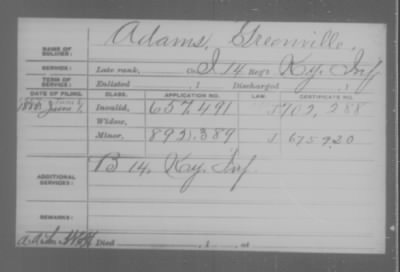 NAME OF SOLDIER: Adams, Greenville
SERVICE: Late rank, Co. I 14 Reg't Ky. Inf
TERM OF SERVICE: Enlisted , 1 Discharged , 1
DATE OF FILING. CLASS. APPLICATION NO. LAW. CERTIFICATE NO.
1888 June 7. Invalid, 657.491 J 702,288
Widow,
Minor, 892.389 J 675920
ADDITIONAL SERVICES: B 14. Ky. Inf.
REMARKS:
Died , 1 , at